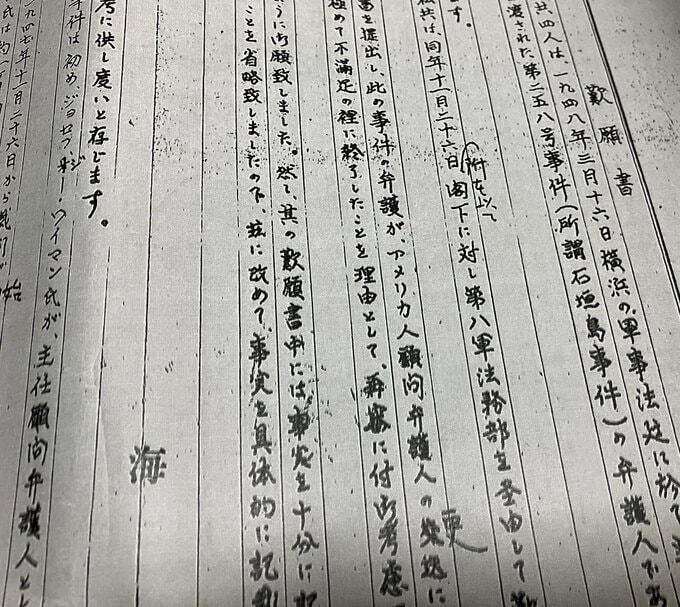 歎願書
共四人は、一九四八年三月十六日横浜の軍事法廷に於て
渡された第二五八号事件(所謂石垣島事件)の弁護人であ
ます。
私共は、同年十一月二十六日附を以て閣下に対し第八軍法務部を経由して歎
書を提出し、此の事件の弁護が、アメリカ人顧問弁護人の変更に
極めて不満足の裡に終了したことを理由として、再審に付御考慮
うに御願致しました。然し、其の歎願書中には、事実を十分に記
ことを省略致しましたので、茲に改めて、事実を具体的に記
考に供し度いと存じます。
海
事件は初め、ジョセフ・ジー・ワイマン氏が、主任顧問弁護人と
一九四七年十一月二十六日から裁判が始